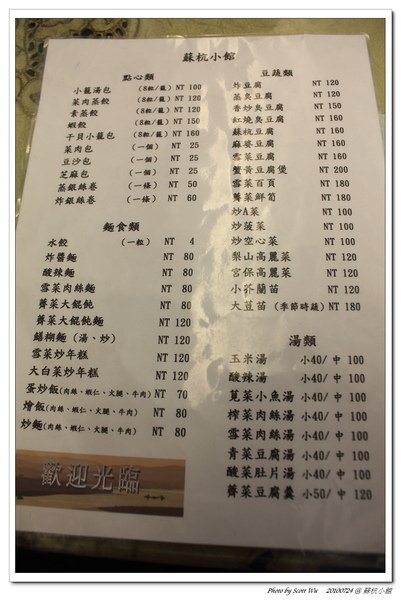 蘇杭小館
點心類
小籠湯包 (8粒/籠) NT 100
菜肉蒸餃 (8粒/籠) NT 120
素蒸餃 (8粒/籠) NT 120
蝦餃 (8粒/籠) NT 150
干貝小籠包 (8粒/籠) NT 160
菜肉包 (一個) NT 25
豆沙包 (一個) NT 25
芝麻包 (一個) NT 25
蒸銀絲卷 (一條) NT 50
炸銀絲卷 (一條) NT 60
麵食類
水餃 (一粒) NT 4
炸醬麵 NT 80
酸辣麵 NT 80
雪菜肉絲麵 NT 80
薺菜大餛飩 NT 80
薺菜大餛飩麵 NT 120
鱔糊麵(湯、炒) NT 120
雪菜炒年糕 NT 120
大白菜炒年糕 NT 120
蛋炒飯(肉絲、蝦仁、火腿、牛肉) NT 70
燴飯(肉絲、蝦仁、火腿、牛肉) NT 80
炒麵(肉絲、蝦仁、火腿、牛肉) NT 80
歡迎光臨
豆蔬類
炸豆腐 NT 120
蒸臭豆腐 NT 120
香炒臭豆腐 NT 150
紅燒臭豆腐 NT 160
蘇杭豆腐 NT 160
麻婆豆腐 NT 160
雪菜豆腐 NT 160
蟹黃豆腐煲 NT 200
雪菜百頁 NT 180
薺菜鮮筍 NT 180
炒A菜 NT 100
炒菠菜 NT 100
炒空心菜 NT 100
梨山高麗菜 NT 120
宮保高麗菜 NT 120
小芥蘭苗 NT 120
大荳苗 (季節時蔬) NT 180
湯類
玉米湯 小40/中 100
酸辣湯 小40/中 100
莧菜小魚湯 小40/中 100
榨菜肉絲湯 小40/中 100
雪菜肉絲湯 小40/中 100
青菜豆腐湯 小40/中 100
酸菜肚片湯 小40/中 100
薺菜豆腐羹 小50/中 120
Photo by Scott Wu 20100724 @ 蘇杭小館